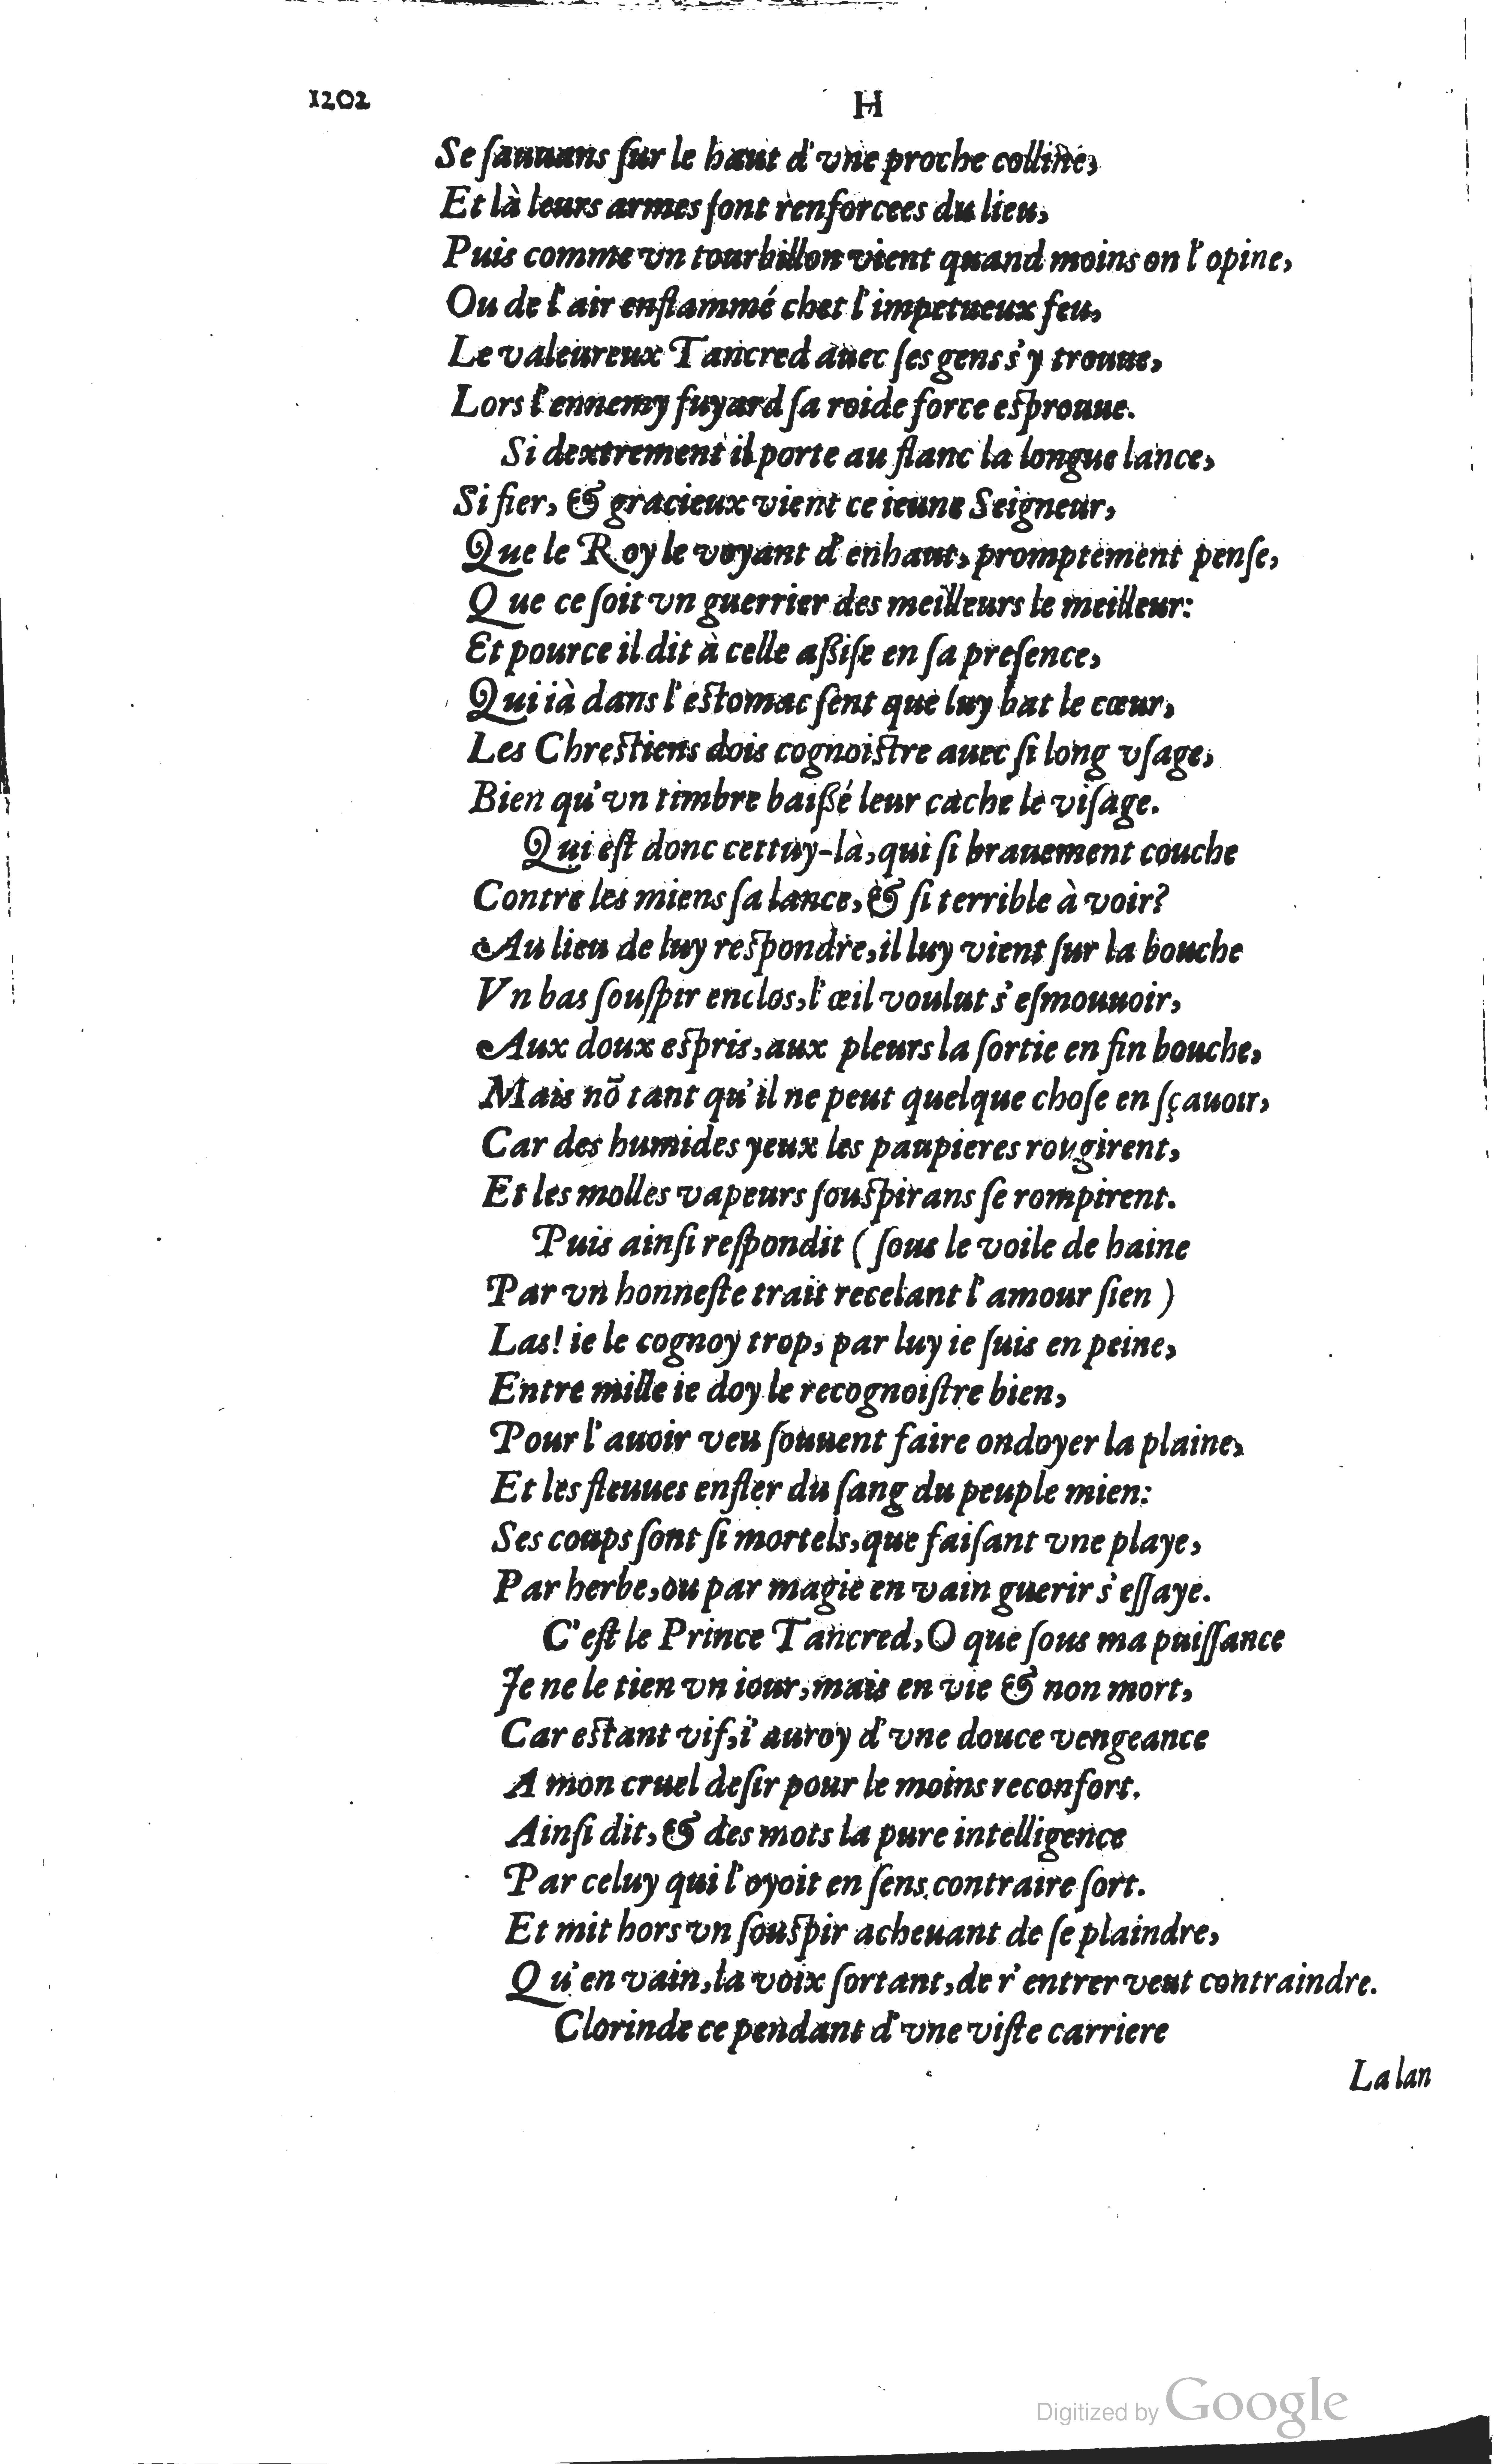 1202 H
Se ſauuans ſur le haut d'vne proche colline,
Et là leurs armes ſont renforcees du lieu,
Puis comme vn tourbillon vient quand moins on l'opine,
Ou de l'air enflammé chet l'impetueux feu,
Le valeureux Tancred auec ſes gens s'y trouue,
Lors l'ennemy fuyard ſa roide force eſprouue.
Si dextrement il porte au flanc la longue lance,
Si fier, & gracieux vient ce ieune Seigneur,
Que le Roy le voyant d'enhaut, promptement penſe,
Que ce ſoit vn guerrier des meilleurs le meilleur:
Et pource il dit à celle aſſiſe en ſa preſence,
Qui ià dans l'eſtomac ſent que luy bat le cœur,
Les Chreſtiens dois cognoiſtre auec ſi long vſage,
Bien qu'vn timbre baiſſé leur cache le viſage.
Qui eſt donc cettuy-là, qui ſi brauement couche
Contre les miens ſa lance, & ſi terrible à voir?
Au lieu de luy reſpondre, il luy vient ſur la bouche
Vn bas ſouſpir enclos, l'œil voulut s'eſmouuoir,
Aux doux eſpris, aux pleurs la ſortie en fin bouche,
Mais nõ tant qu'il ne peut quelque choſe en ſçauoir,
Car des humides yeux les paupieres rougirent,
Et les molles vapeurs ſouſpirans ſe rompirent.
Puis ainſi reſpondit (ſous le voile de haine
Par vn honneſte trait recelant l'amour ſien)
Las! ie le cognoy trop, par luy ie ſuis en peine,
Entre mille ie doy le recognoiſtre bien,
Pour l'auoir veu ſouuent faire ondoyer la plaine,
Et les fleuues enfler du ſang du peuple mien:
Ses coups ſont ſi mortels, que faiſant vne playe,
Par herbe, ou par magie en vain guerir s'eſſaye.
C'eſt le Prince Tancred, O que ſous ma puiſſance
Je ne le tien vn iour, mais en vie & non mort,
Car eſtant vif, i'auroy d'vne douce vengeance
A mon cruel deſir pour le moins reconfort.
Ainſi dit, & des mots la pure intelligence
Par celuy qui l'oyoit en ſens contraire ſort.
Et mit hors vn ſouſpir acheuant de ſe plaindre,
Qu'en vain, la voix ſortant, de r'entrer veut contraindre.
Clorinde ce pendant d'vne viſte carriere
La lan
Digitized by Google